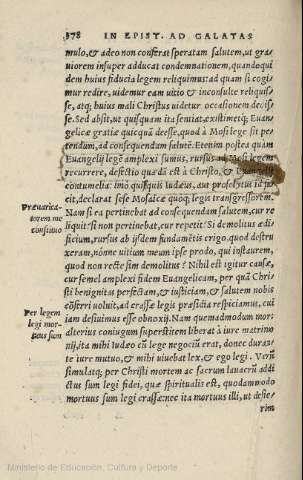 378 IN EPIST. AD GALATAS
mulo, & adeo non conferat speratam salutem, ut gra/
uiorem insuper adducat condemnationem, quandoqui
dem huius fiducia legem reliquimus: ad quam si cogi
mur redire, uidemur eam uitio & inconsulte reliquis/
se, atq; huius mali Christus uidetur occasionem dedis/
se. Sed absit, ut quisquam ita sentiat, existimetq; Euan/
gelicæ gratiæ quicquã deesse, quod à Mosi lege sit pe
tendum, ad consequendum salutẽ. Etenim postea quam
Euangelij legẽ amplexi sumus, rursus ad Mosi legem
recurrere, defectio quædã est à Christo, & Euangelij
contumelia: imò quisquis Iudæus, aut proselytus id fa/
cit, declarat sese Mosaicæ quoq; legis transgressorem.
Præuarica/
torem me
constituo
Nam si ea pertinebat ad consequendam salutem, cur re
liquit? si non pertinebat, cur repetit? Si demolitus ædi
ficium, rursus ab ijsdem fundamẽtis erigo, quod destru
xeram, nónne uitium meum ipse prodo, qui instaurem,
quod non recte sim demolitus? Nihil est igitur causæ,
cur semel amplexi fidem Euangelicam, per quã Chri/
sti benignitas perfectam, & iustitiam, & salutem nobis
adferri uoluit, ad crassæ legis præsidia respiciamus, cui
Per legem
legi mor/
tuus sum
iam desiuimus esse obnoxij. Nam quemadmodum mors
alterius coniugum superstitem liberat à iure matrimo
nij, ita mihi Iudæo cũ lege negocium erat, donec duran/
te iure mutuo, & mihi uiuebat lex, & ego legi. Verũ
simulatq; per Christi mortem ac sacrum lauacrũ addi
ctus sum legi fidei, quæ spiritualis est, quodammodo
mortuus sum legi crassæ: nec ita mortuus illi, ut desie/
rim
Ministerio de Educación, Cultura y Deporte